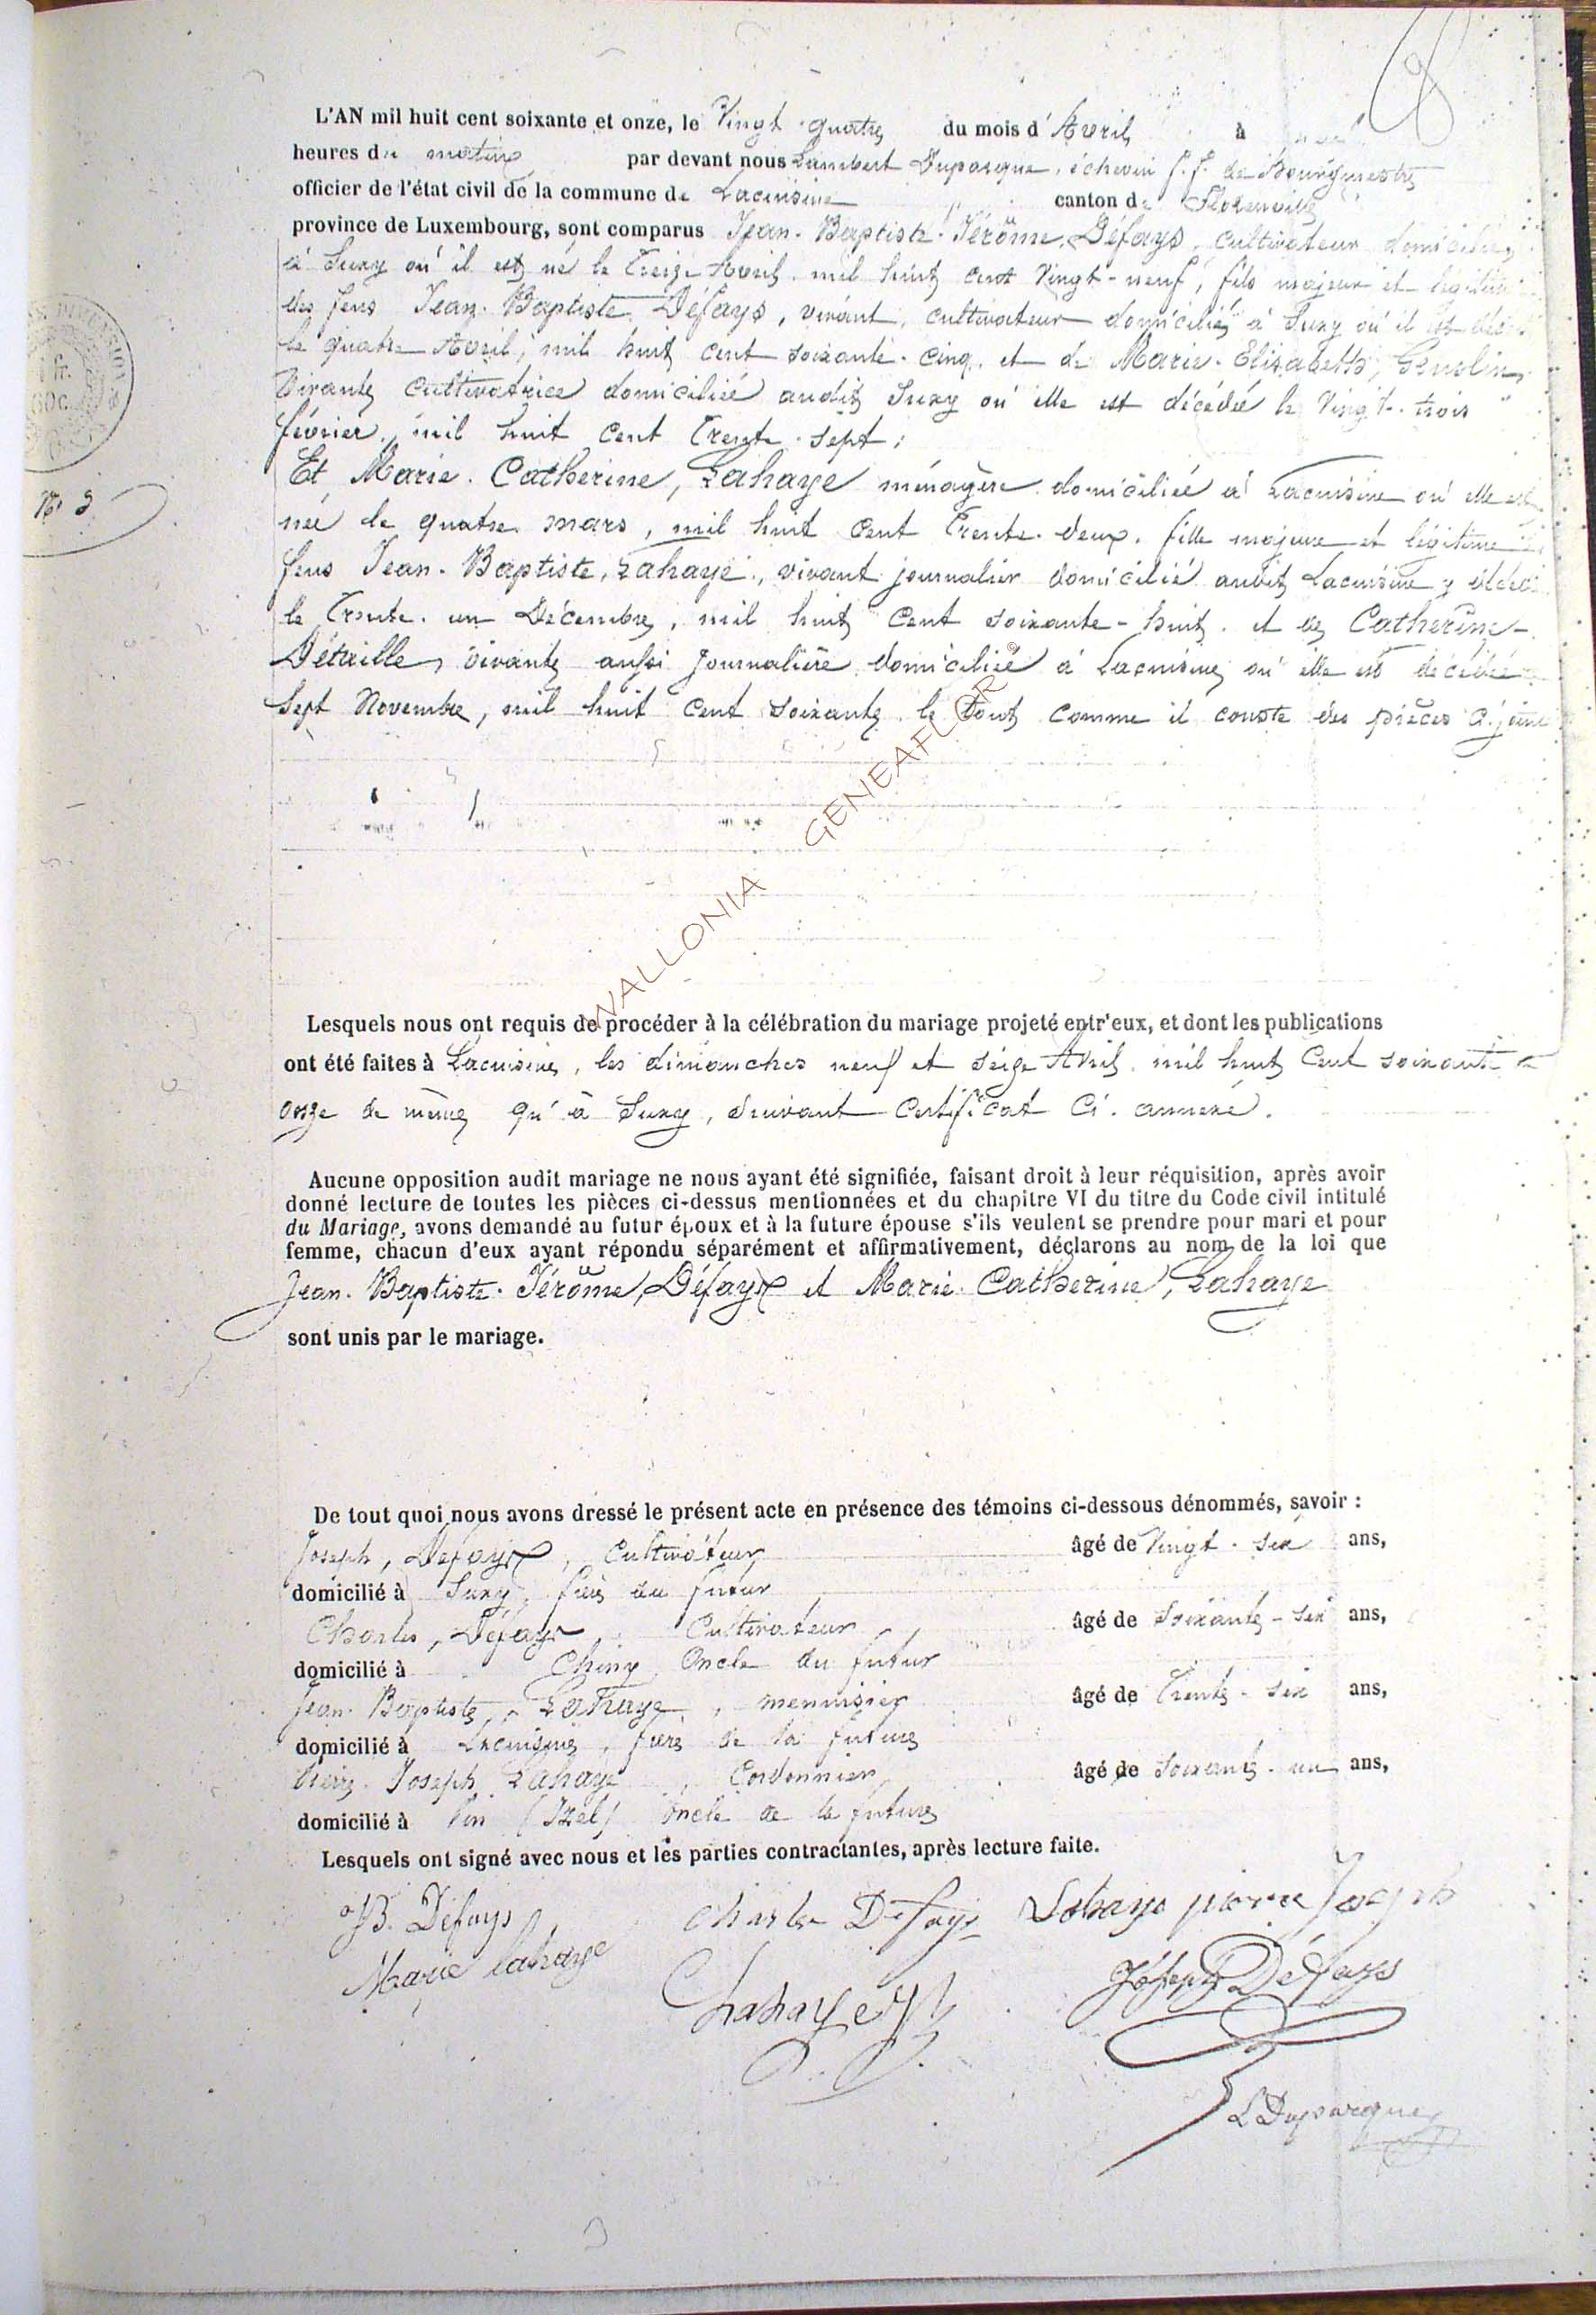 L'AN mil huit cent soixante et onze, le Vingt-quatre du mois d'Avril à
heures du matin par devant nous Lambert Duparque, échevin f.f. de Bourgmestre
officier de l'état civil de la commune de Lacuisine canton de Florenville
province de Luxembourg, sont comparus Jean-Baptiste-Jérôme, Défays, cultivateur domicilié
à Suxy où il est né le Treize Avril mil huit cent Vingt-neuf, fils majeur et légitime
des feus Jean-Baptiste, Défays, vivant, cultivateur domicilié à Suxy où il est
le quatre Avril, mil huit cent soixante-cinq, et de Marie-Elisabeth,
vivante cultivatrice domiciliée audit Suxy où elle est décédée le Vingt-trois
février, mil huit cent Trente-sept;
Et Marie-Catherine, Lahaye ménagère domiciliée à Lacuisine où elle est
née le quatre mars, mil huit cent Trente-deux, fille majeure et légitime
feus Jean-Baptiste, Lahaye, vivant journalier domicilié audit Lacuisine y
le Trente-un Décembre, mil huit cent soixante-huit, et de Catherine
Détaille, vivante aussi journalière domiciliée à Lacuisine où elle est décédée
sept Novembre, mil huit cent soixante, le tout comme il conste des pièces
1 fr.
60c
N° 3
8
WALLONIA GENEAFLOR ©
Lesquels nous ont requis de procéder à la célébration du mariage projeté entr'eux, et dont les publications
ont été faites à Lacuisine, les dimanches neuf et seize Avril mil huit cent soixante et
onze de même qu'à Suxy, suivant certificat ci-annexé.
Aucune opposition audit mariage ne nous ayant été signifiée, faisant droit à leur réquisition, après avoir
donné lecture de toutes les pièces ci-dessus mentionnées et du chapitre VI du titre du Code civil intitulé
du Mariage, avons demandé au futur époux et à la future épouse s'ils veulent se prendre pour mari et pour
femme, chacun d'eux ayant répondu séparément et affirmativement, déclarons au nom de la loi que
Jean-Baptiste-Jérôme, Défays et Marie-Catherine, Lahaye
sont unis par le mariage.
De tout quoi nous avons dressé le présent acte en présence des témoins ci-dessous dénommés, savoir :
Joseph, Défays, Cultivateur âgé de Vingt-six ans,
domicilié à Suxy, frère du futur
Charles, Défays, Cultivateur âgé de Soixante-six ans,
domicilié à Chiny, Oncle du futur
Jean-Baptiste, Lahaye, menuisier âgé de Trente-six ans,
domicilié à Lacuisine, frère de la future
Pierre-Joseph Lahaye, Cordonnier âgé de Soixante-un ans,
domicilié à Pin (Izel) Oncle de la future
Lesquels ont signé avec nous et les parties contractantes, après lecture faite.
JB. Défays Charles Defays Lahaye pierre Joseph
Marie lahaye Lahaye JB Joseph Défays
L Duparque